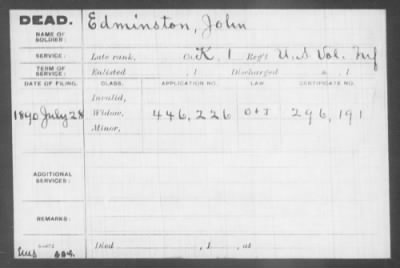 DEAD. Edminston, John
NAME OF SOLDIER:
SERVICE: Late rank, Co. K, 1 Reg't U.S. Vol. Inf
TERM OF SERVICE: Enlisted , 1 Discharged , 1
DATE OF FILING. CLASS. APPLICATION NO. LAW. CERTIFICATE NO.
Invalid,
1890 July 28 Widow, 446,226 O & I 296,191
Minor,
ADDITIONAL SERVICES:
REMARKS:
Died , 1 , at